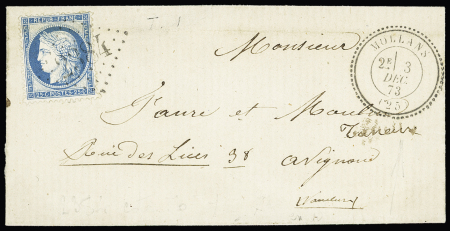 REPUB·FRANC·
25 C·POSTES·25 C
MOLLANS
2E 3
DEC
73
(25)
Monsieur
Faure et
Tanneurs
Rue des Lices 38 Avignon
Vaucluse